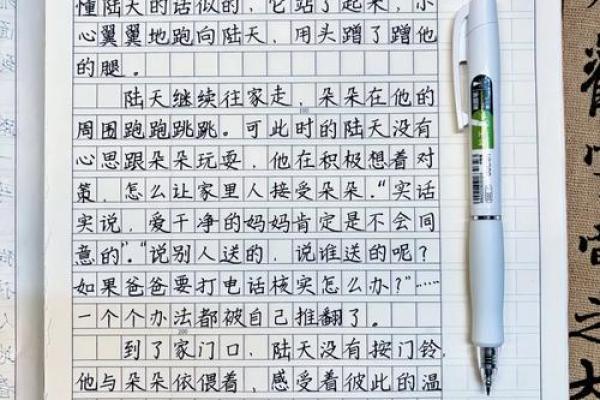 懂陆天的话似的，它站了起来，小
心翼翼地跑向陆天，用头蹭了蹭他
的腿。
陆天继续往家走，朵朵在他的
周围跑跑跳跳。可此时的陆天没有
心思跟朵朵玩耍，他在积极想着对
策，怎么让家里人接受朵朵。“实话
实说，爱干净的妈妈肯定是不会同
意的”。“说别人送的，说谁送的呢？
如果爸爸要打电话核实怎么办？”……
一个个办法都被自己推翻了。
到了家门口，陆天没有按门铃，
他与朵朵依偎着，感受着彼此的温